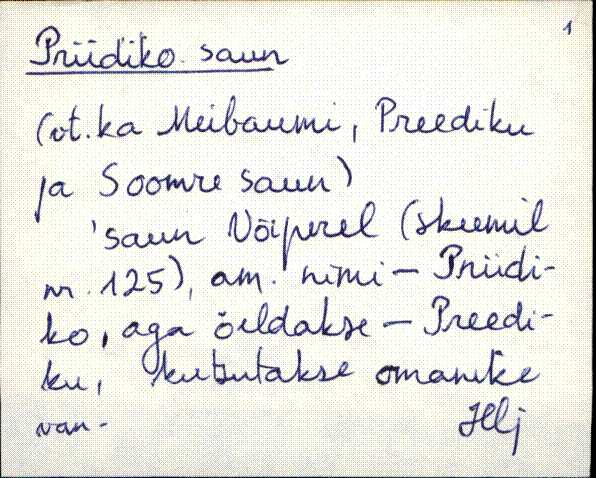 1
Priidiko saun
(vt. ka Meibaumi, Preediku
ja Soomre saun)
'saun Võiperel (skeemil
nr. 125), am. nimi – Priidi-
ko, aga öeldakse – Preedi-
ku, kutsutakse omanike
van-
Hlj